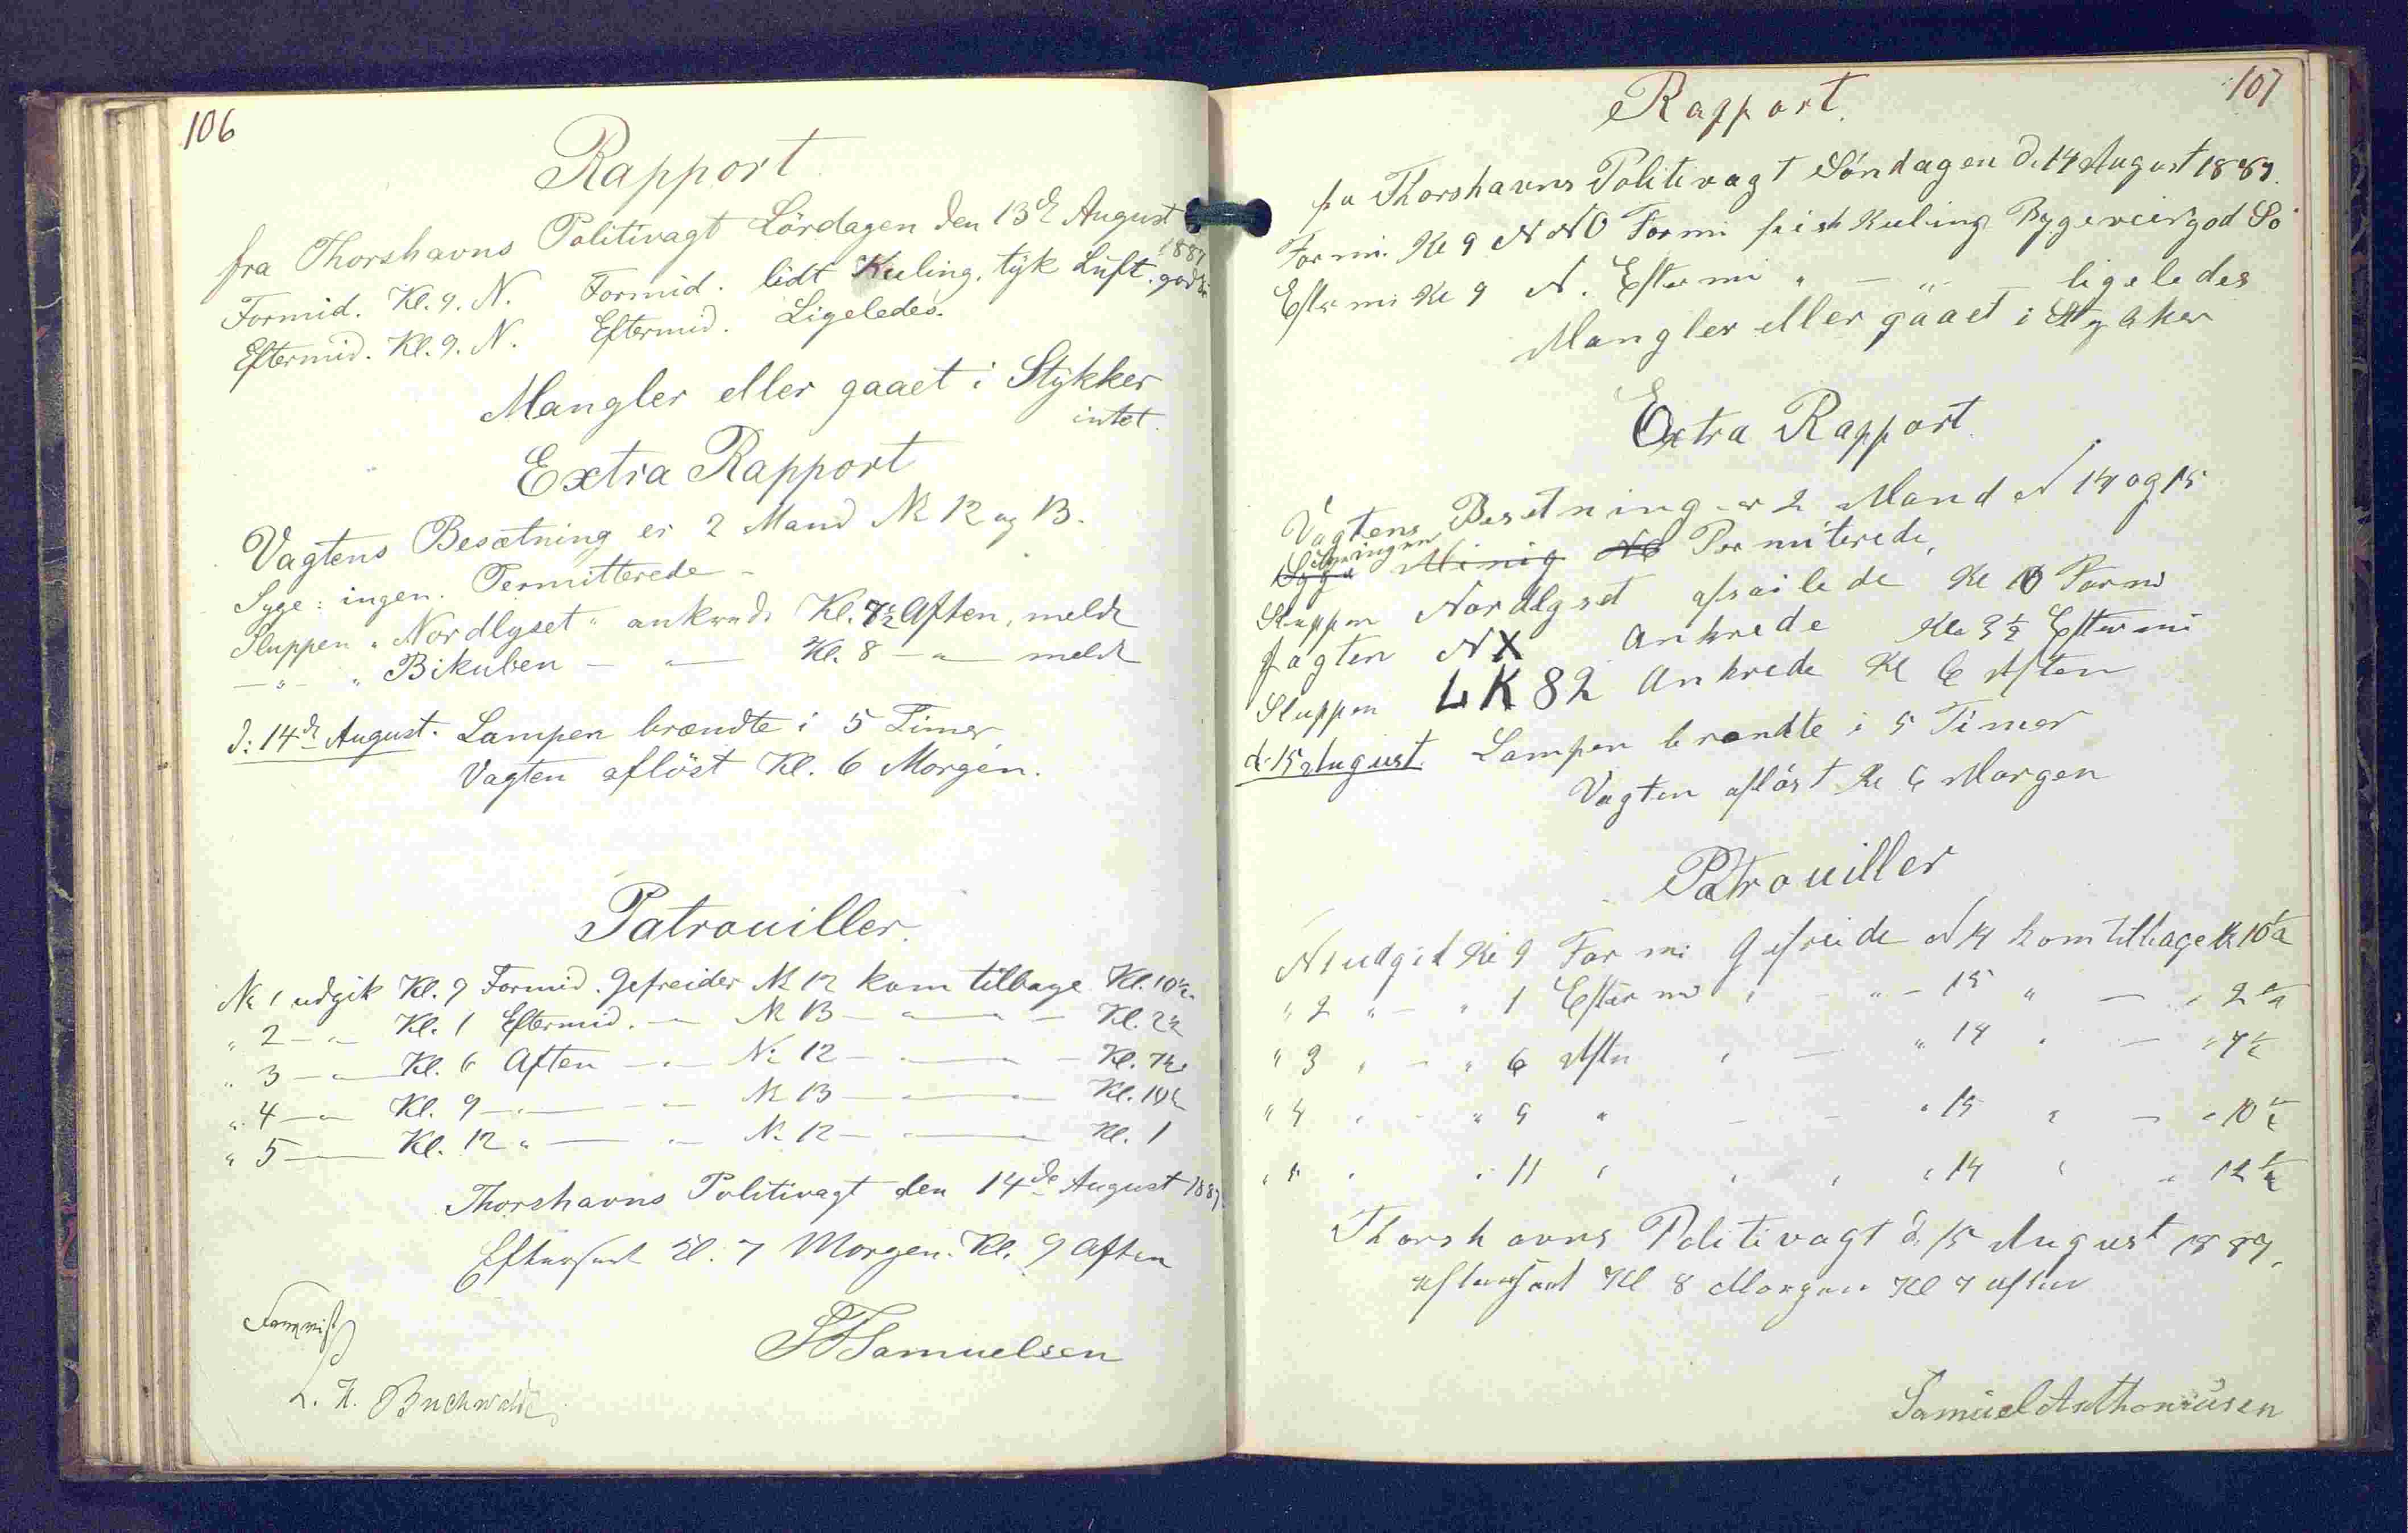 106
Rapport
fra Thorshavns Politivagt Lördagen den 13de August
1887
Formid. Kl. 9. N. Formid. lidt Kuling. tÿk Luft. god Sö
Eftermid. Kl. 9. N. Eftermid. Ligeledes.
Mangler eller gaaet i Stÿkker
intet.
Extra Rapport
Vagtens Besætning er 2 Mand № 12 og 13.
Syge: ingen. Permitterede –
Sluppen „Nordlyset“ ankrede Kl. 7½ Aften, meldt
— „ — „Bikuben — „ — Kl. 8 — „ — meldt
d: 14de August. Lampen brændte i 5 Timer,
Vagten aflöst Kl. 6 Morgen.
Patrouiller.
№ 1 udgik Kl. 9 Formid. Gefreider № 12 kom tilbage Kl. 10½
„ 2 — „ — Kl. 1 Eftermid. — „ № 13 — „ — Kl. 2½
„ 3 — „ — Kl. 6 Aften — „ — № 12 — „ — Kl. 7½
„ 4 — „ — Kl. 9 — „ — № 13 — „ — Kl. 10½
„ 5 — Kl. 12 „ — „ — № 12 — „ — Kl. 1
Thorshavns Politivagt den 14de August 1887.
Efterseet Kl. 7 Morgen. Kl. 9 Aften
Samuelsen
L. H. Buchwaldt
107
Rapport.
fra Thorshavns Politivagt Söndagen d. 14 August 1887.
Formi. Kl 9 NNO Formi frisk Kuling Bygeveir god Sö
Eftermi Kl 9 N. Eftermi „ — „ — ligeledes
Mangler eller gaaet i Stykker
Extra Rapport
Vagtens Besetning er 2 Mand N 14 og 15
Syge ingen Permiterede,
Sluppen Nordlyset afsailede Kl 10 Formi
Jagten NX Ankrede Kl 3½ Eftermi
Sluppen LK 82 Ankrede Kl 6 Aften
d. 15 August. Lampen brændte i 5 Timer
Vagten aflöst Kl 6 Morgen
Patrouiller
N 1 udgik Kl 9 Formi Gefreide N 14 kom tilbage Kl 10½
„ 2 „ — „ 1 Eftermi „ — „ — 15 „ — „ 2½
„ 3 „ — „ 6 Aften „ — „ 14 „ — „ 7½
„ 4 „ — „ 9 „ — — „ 15 „ — „ 10½
„ 5 „ „ 11 „ „ „ „ 14 „ „ 12½
Thorshavns Politivagt d. 15 August 1887.
efterseet Kl 8 Morgen Kl 7 aften
Samuel Anthoniusen